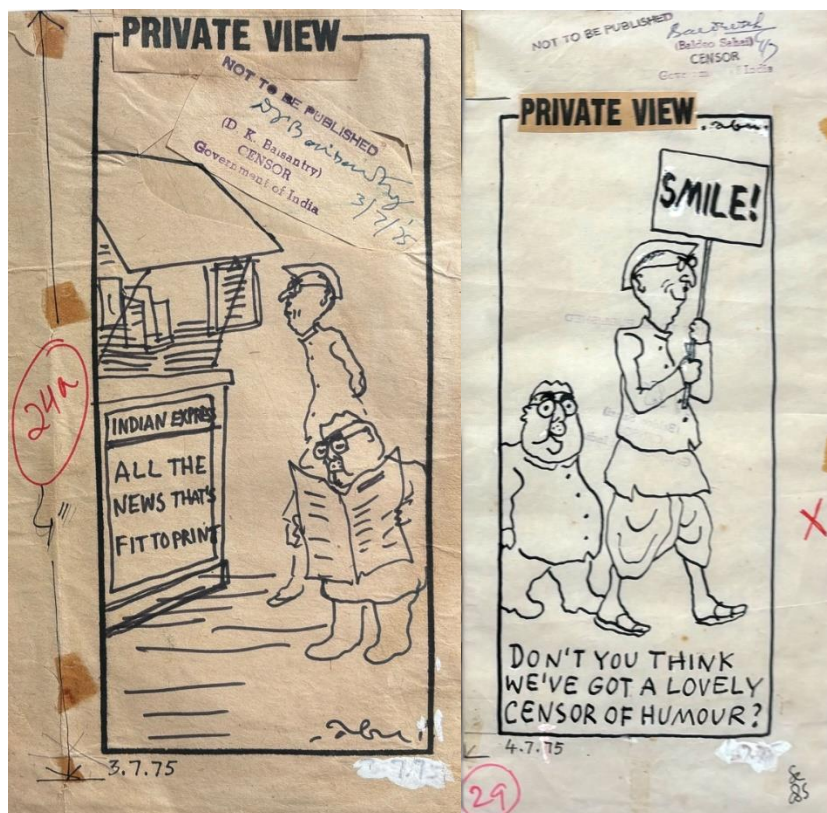 PRIVATE VIEW
NOT TO BE PUBLISHED
(D. K. Baisantry)
CENSOR
Government of India
3/7/75
24a
INDIAN EXPRESS
ALL THE
NEWS THAT'S
FIT TO PRINT
abu
3.7.75
NOT TO BE PUBLISHED
(Baldoo Sahai)
CENSOR
Government of India
PRIVATE VIEW
abu
SMILE!
DON'T YOU THINK
WE'VE GOT A LOVELY
CENSOR OF HUMOUR?
4.7.75
29